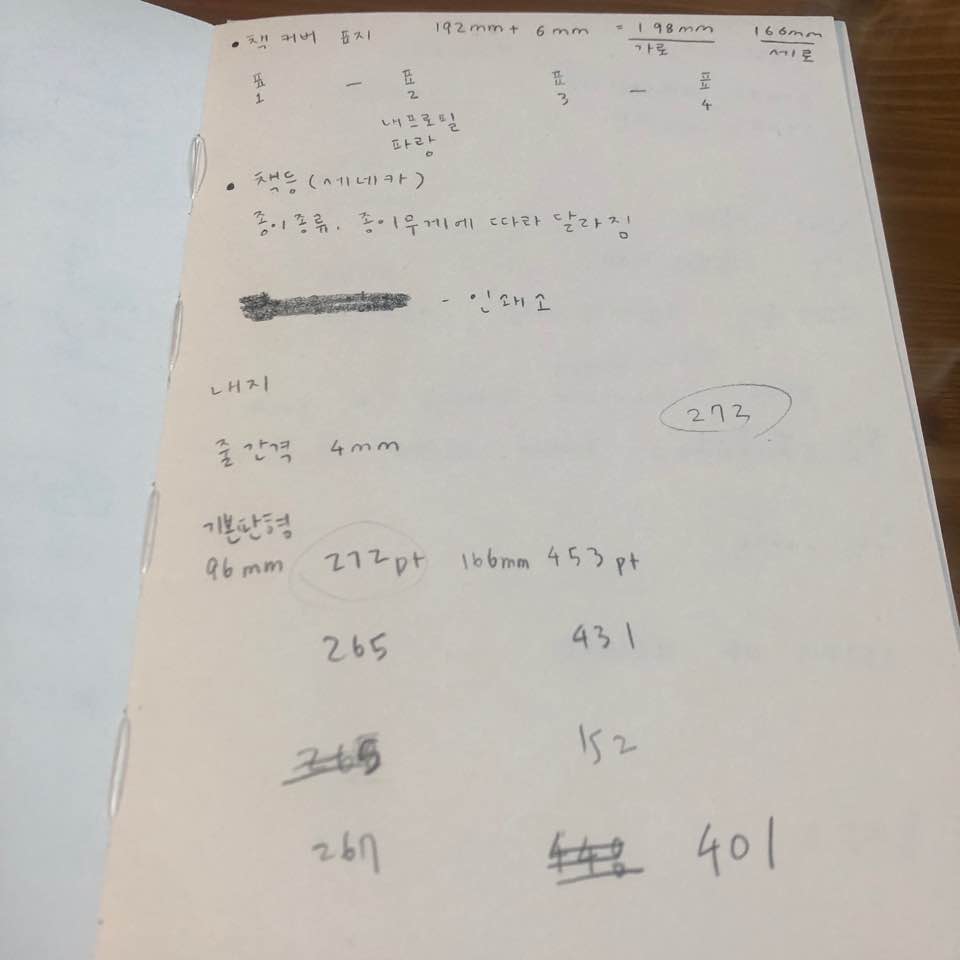 • 책 커버 표지 192mm + 6mm = 198mm 166mm
가로 세로
표 — 표 표 — 표
1 2 3 4
내프로필
파랑
• 책등(세네카)
종이종류, 종이무게에 따라 달라짐
- 인쇄소
내지
273
줄간격 4mm
기본판형
96mm 272pt 166mm 453pt
265 431
265 152
267 440 401